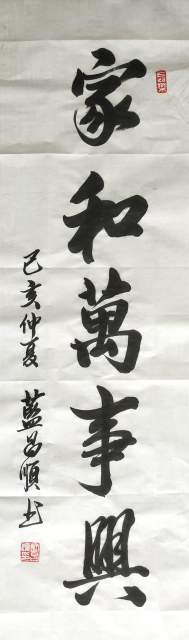 家和萬事興
己亥仲夏 藍昌順书